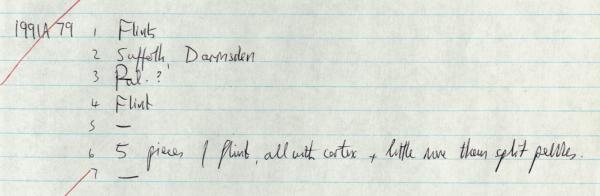 1991A 79 1 Flints
2 Suffolk, Darmsden
3 Pal. ?
4 Flint
5 —
6 5 pieces / flint, all with cortex + little more than split pebbles.
7 —